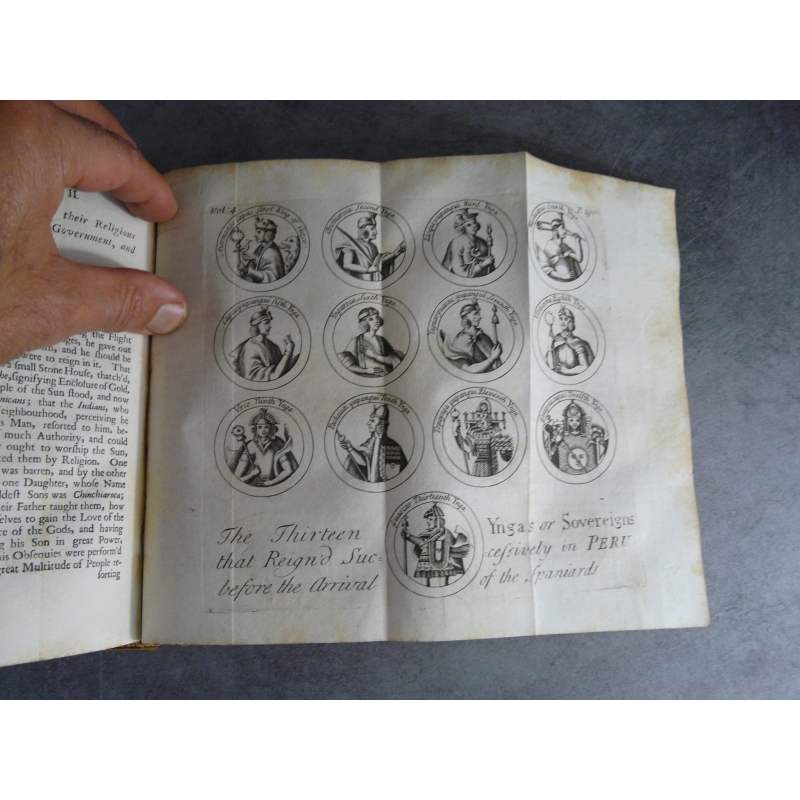 II.
their Religious
Government, and
the Flight
he gave out
and he should be
were to reign in it. That
a small Stone House, thatch'd,
signifying Enclosure of Gold,
ple of the Sun stood, and now
nicans; that the Indians, who
eighbourhood, perceiving he
s Man, resorted to him, be-
much Authority, and could
ought to worship the Sun,
ted them by Religion. One
was barren, and by the other
one Daughter, whose Name
ldest Sons was Chinchiaroca;
heir Father taught them, how
selves to gain the Love of the
ce of the Gods, and having
g his Son in great Power,
his Obsequies were perform'd
great Multitude of People re-
sorting
vol: 4
first King of
Second Ynga
yupangui third Ynga
fourth Ynga
yupangui fifth Ynga
Yngaroca Sixth Ynga
yupangui Seventh Ynga
Eighth Ynga
Ninth Ynga
yupangui Tenth Ynga
yupangui Eleventh Ynga
Twelfth Ynga
Thirteenth Ynga
The Thirteen Yngas or Sovereigns
that Reign'd Suc= cessively in PERU
before the Arrival of the Spaniards